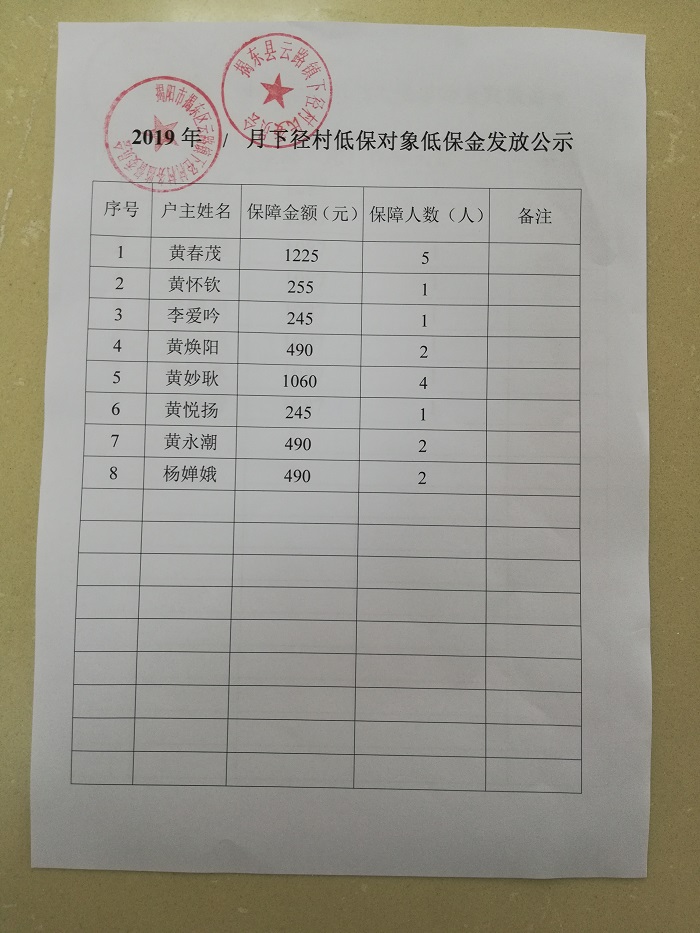 揭东县云路镇下径村民委员会
揭阳市揭东区云路镇下径村务监督委员会
2019 年 / 月下径村低保对象低保金发放公示
序号 户主姓名 保障金额（元） 保障人数（人） 备注
1 黄春茂 1225 5
2 黄怀钦 255 1
3 李爱吟 245 1
4 黄焕阳 490 2
5 黄妙耿 1060 4
6 黄悦扬 245 1
7 黄永潮 490 2
8 杨婵娥 490 2